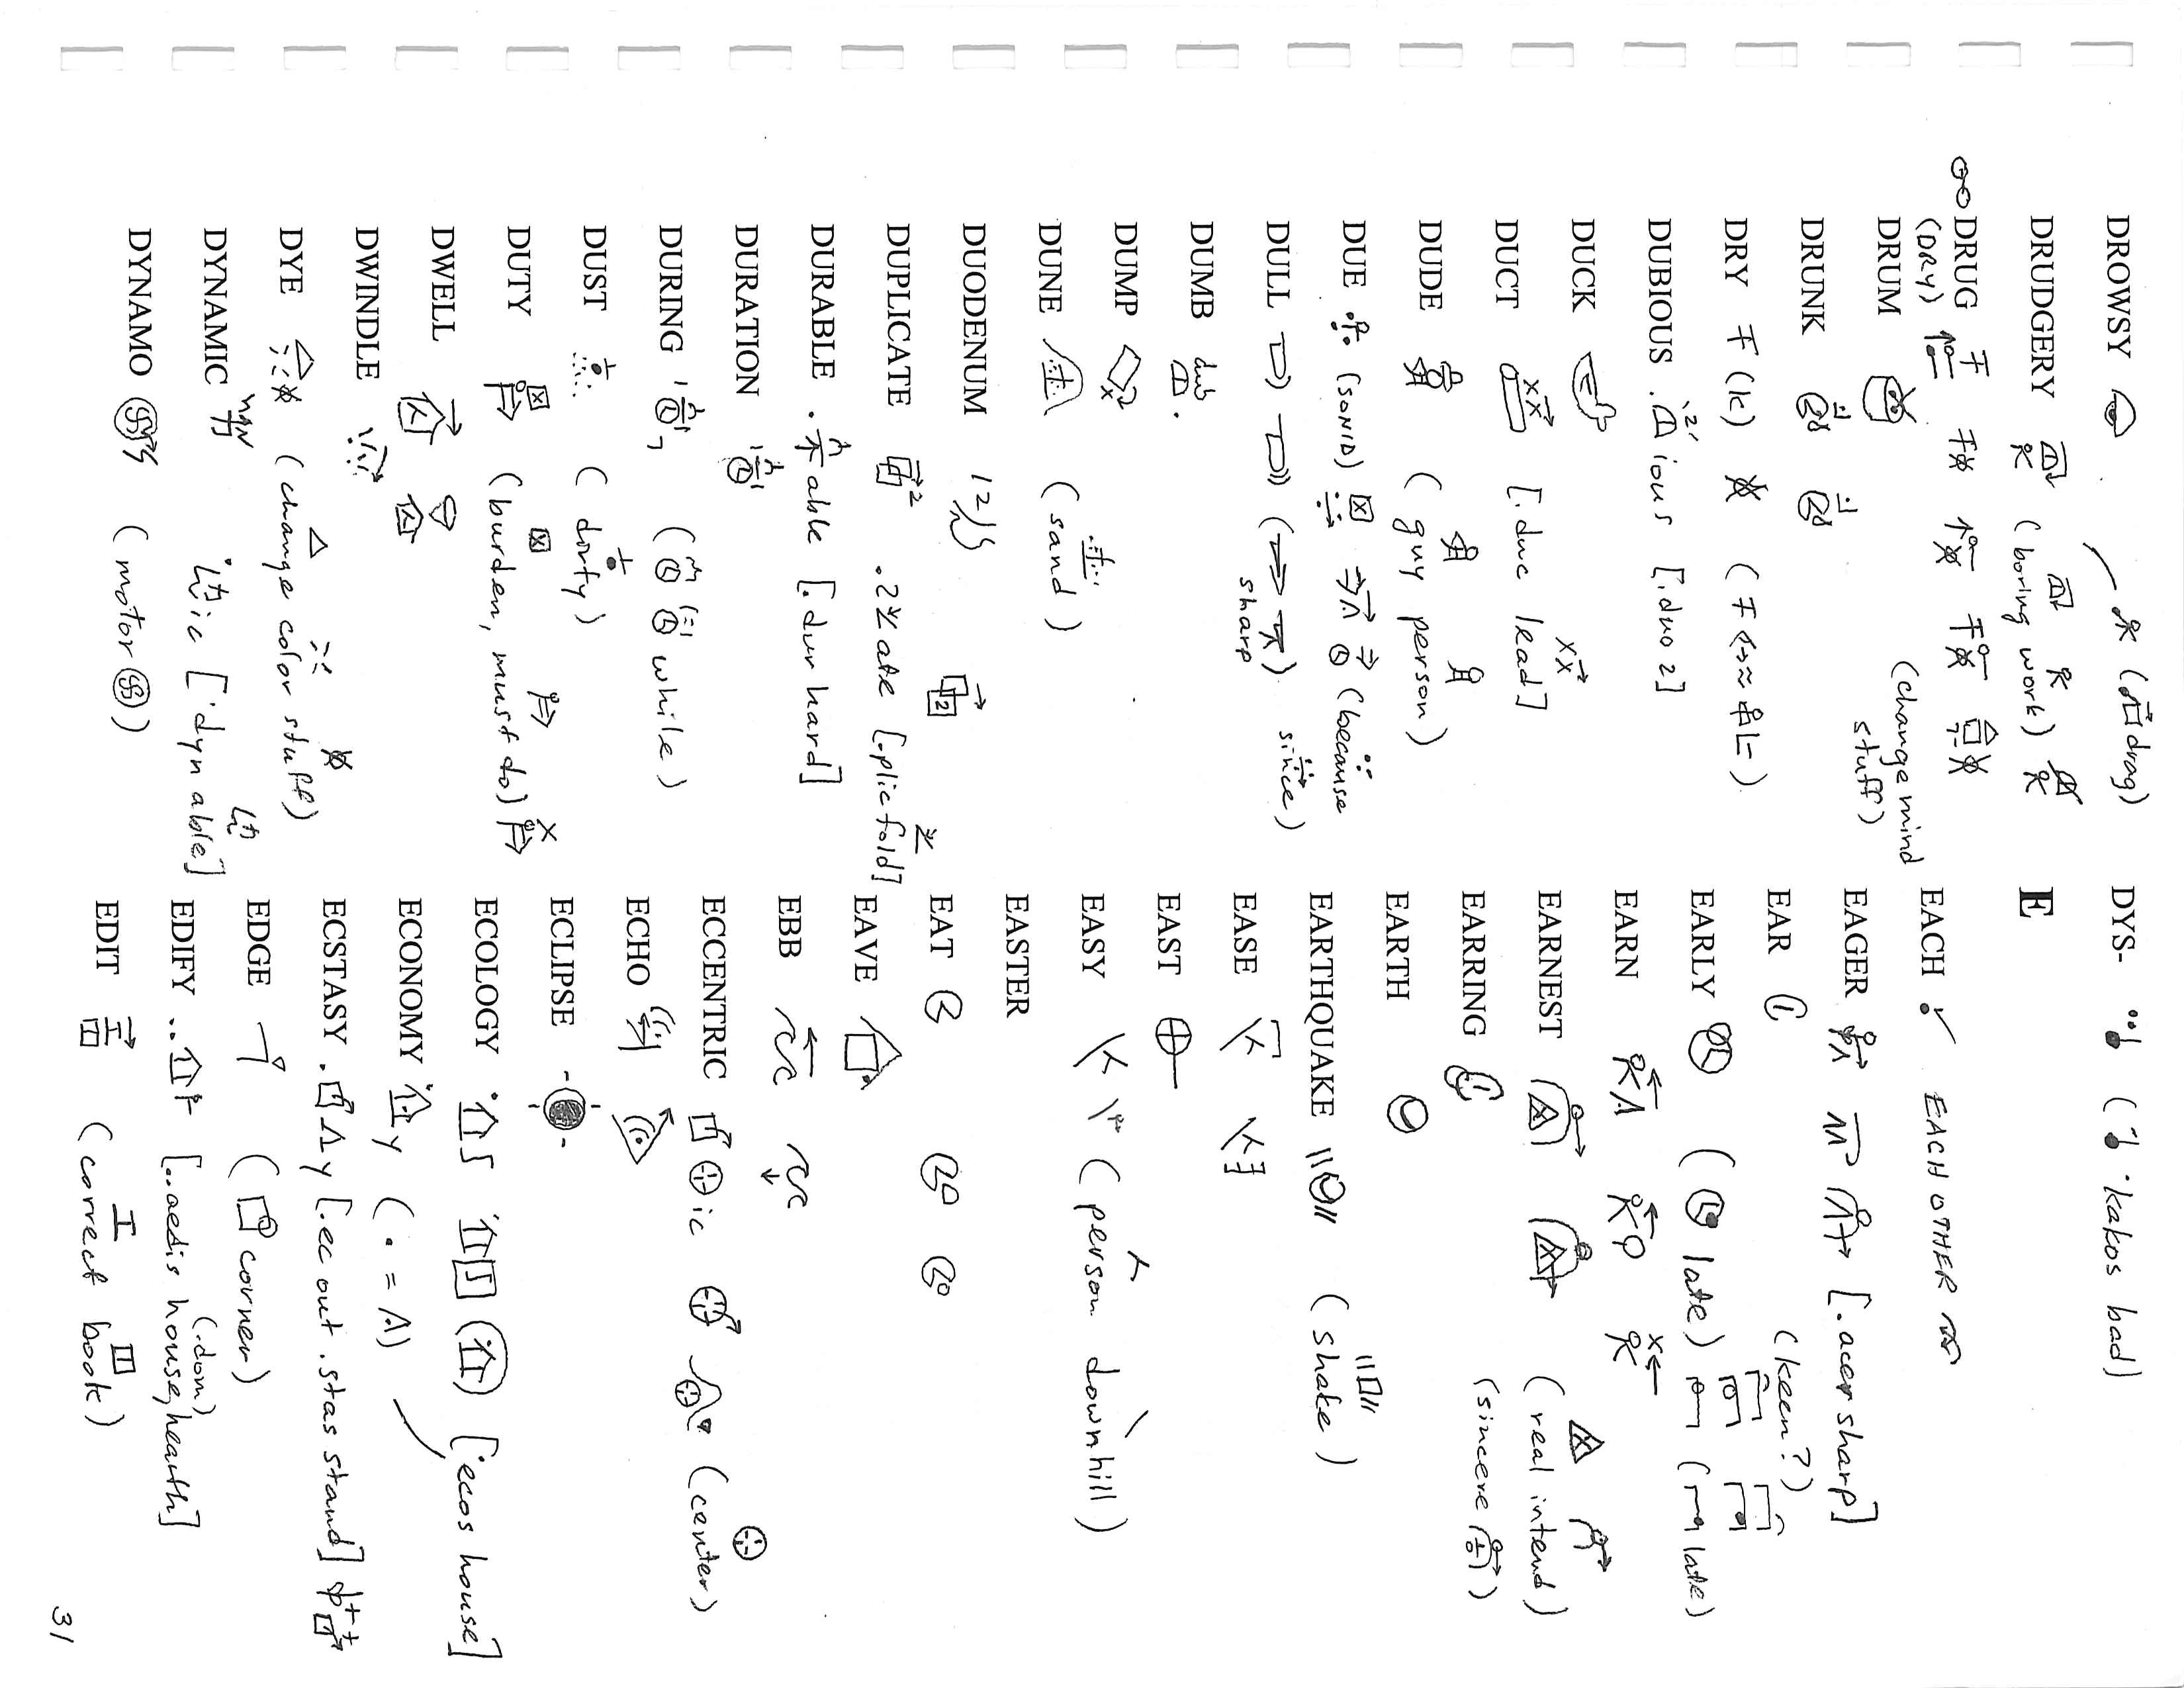 DROWSY (drag)
DRUDGERY (boring work)
DRUG
(DRY)
(change mind
stuff)
DRUM
DRUNK
DRY (k)
DUBIOUS .2 ious [.duo 2]
DUCK
DUCT [.duc lead]
DUDE (guy person)
DUE (SONID) (because
since)
DULL
sharp)
DUMB dub
DUMP
DUNE (sand)
DUODENUM 12
DUPLICATE 2 .2 ate [.plic fold]
DURABLE . able [.dur hard]
DURATION
DURING (while)
DUST (dirty)
DUTY (burden, must do)
DWELL
DWINDLE
DYE (change color stuff)
DYNAMIC ic [·dyn able]
DYNAMO (motor)
DYS- (·kakos bad)
E
EACH EACH OTHER
EAGER [.acer sharp]
(keen?)
EAR
EARLY (late) (late)
EARN
EARNEST (real intend)
(sincere)
EARRING
EARTH
EARTHQUAKE (shake)
EASE
EAST
EASY (person downhill)
EASTER
EAT
EAVE
EBB
ECCENTRIC ic (center)
ECHO
ECLIPSE
ECOLOGY [·ecos house]
ECONOMY y
ECSTASY y [.ec out .stas stand]
EDGE (corner)
(.dom)
EDIFY [..aedis house, hearth]
EDIT (correct book)
31